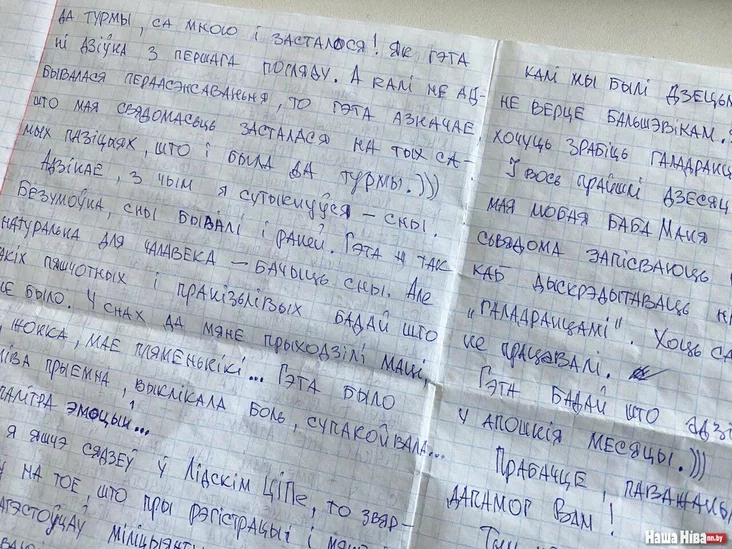 ДА ТУРМЫ, СА МНОЮ І ЗАСТАЛОСЯ! ЯК ГЭТА
НІ ДЗІЎНА З ПЕРШАГА ПОГЛЯДУ. А КАЛІ НЕ АД-
БЫВАЛАСЯ ПЕРААСЭНСАВАНЬНЯ, ТО ГЭТА АЗНАЧАЕ,
ШТО МАЯ СВЯДОМАСЬЦЬ ЗАСТАЛАСЯ НА ТЫХ СА-
МЫХ ПАЗІЦЫЯХ, ШТО І БЫЛА ДА ТУРМЫ.)))
АДЗІНАЕ, З ЧЫМ Я СУТЫКНУЎСЯ – СНЫ.
БЕЗУМОЎНА, СНЫ БЫВАЛІ І РАНЕЙ. ГЭТА Ж ТАК
НАТУРАЛЬНА ДЛЯ ЧАЛАВЕКА – БАЧЫЦЬ СНЫ. АЛЕ
ТАКІХ ПЯШЧОТНЫХ І ПРАНІЗЬЛІВЫХ БАДАЙ ШТО
НЕ БЫЛО. У СНАХ ДА МЯНЕ ПРЫХОДЗІЛІ МАЦІ,
ЖОНКА, МАЕ ПЛЯМЕНЬНІКІ... ГЭТА БЫЛО
ПРЫЕМНА, ВЫКЛІКАЛА БОЛЬ, СУПАКОЙВАЛА...
ПАЛІТРА ЭМОЦЫЙ...
Я ЯШЧЭ СЯДЗЕЎ У ЛІДСКІМ ЦІПе, ТО ЗВЯР-
НА ТОЕ, ШТО ПРЫ РЭГІСТРАЦЫІ І
МІЛІЦЫЯНТЫ
КАЛІ МЫ БЫЛІ ДЗЕЦЬМ
НЕ ВЕРЦЕ БАЛЬШЭВІКАМ.
ХОЧУЦЬ ЗРАБІЦЬ ГАЛАДРАНЦ
І ВОСЬ ПРАЙШЛІ ДЗЕСЯЦ
МАЯ ЛЮБАЯ БАБА МАНЯ
СЬВЯДОМА ЗАПІСВАЮЦЬ
КАБ ДЫСКРЭДЫТАВАЦЬ
„ГАЛАДРАНЦАМІ". ХОЦЬ СА
НЕ ПРАЦАВАЛІ.
ГЭТА БАДАЙ ШТО АДЗІ
У АПОШНІЯ МЕСЯЦЫ.)))
ПРАБАЧЦЕ, ПАВАЖАНЫ
ДАПАМОГ ВАМ!
Наша Ніва nn.by